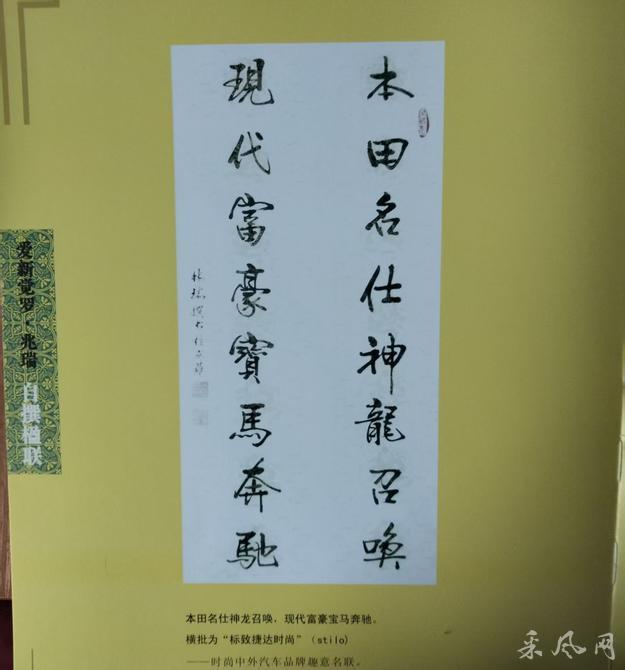 本田名仕神龍召喚
現代富豪寶馬奔馳
爱新觉罗·兆瑞 自撰楹联
本田名仕神龙召唤，现代富豪宝马奔驰。
横批为“标致捷达时尚”（stilo）
——时尚中外汽车品牌趣意名联。
采风网